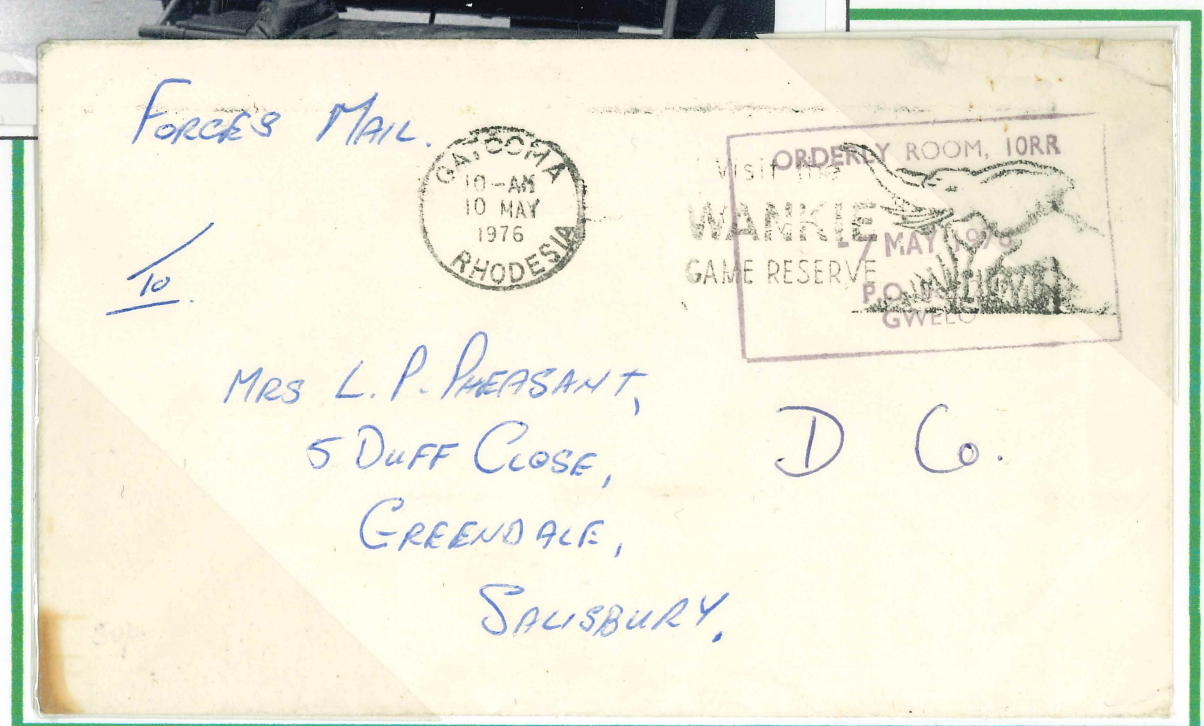 FORCES MAIL.
GATOOMA
10-AM
10 MAY
1976
RHODESIA
Visit the
WANKIE
GAME RESERVE
ORDERLY ROOM, 10RR
-7 MAY 1976
P.O.
GWELO
To
MRS L. P. PHEASANT,
5 DUFF CLOSE,
GREENDALE,
SALISBURY.
D Co.